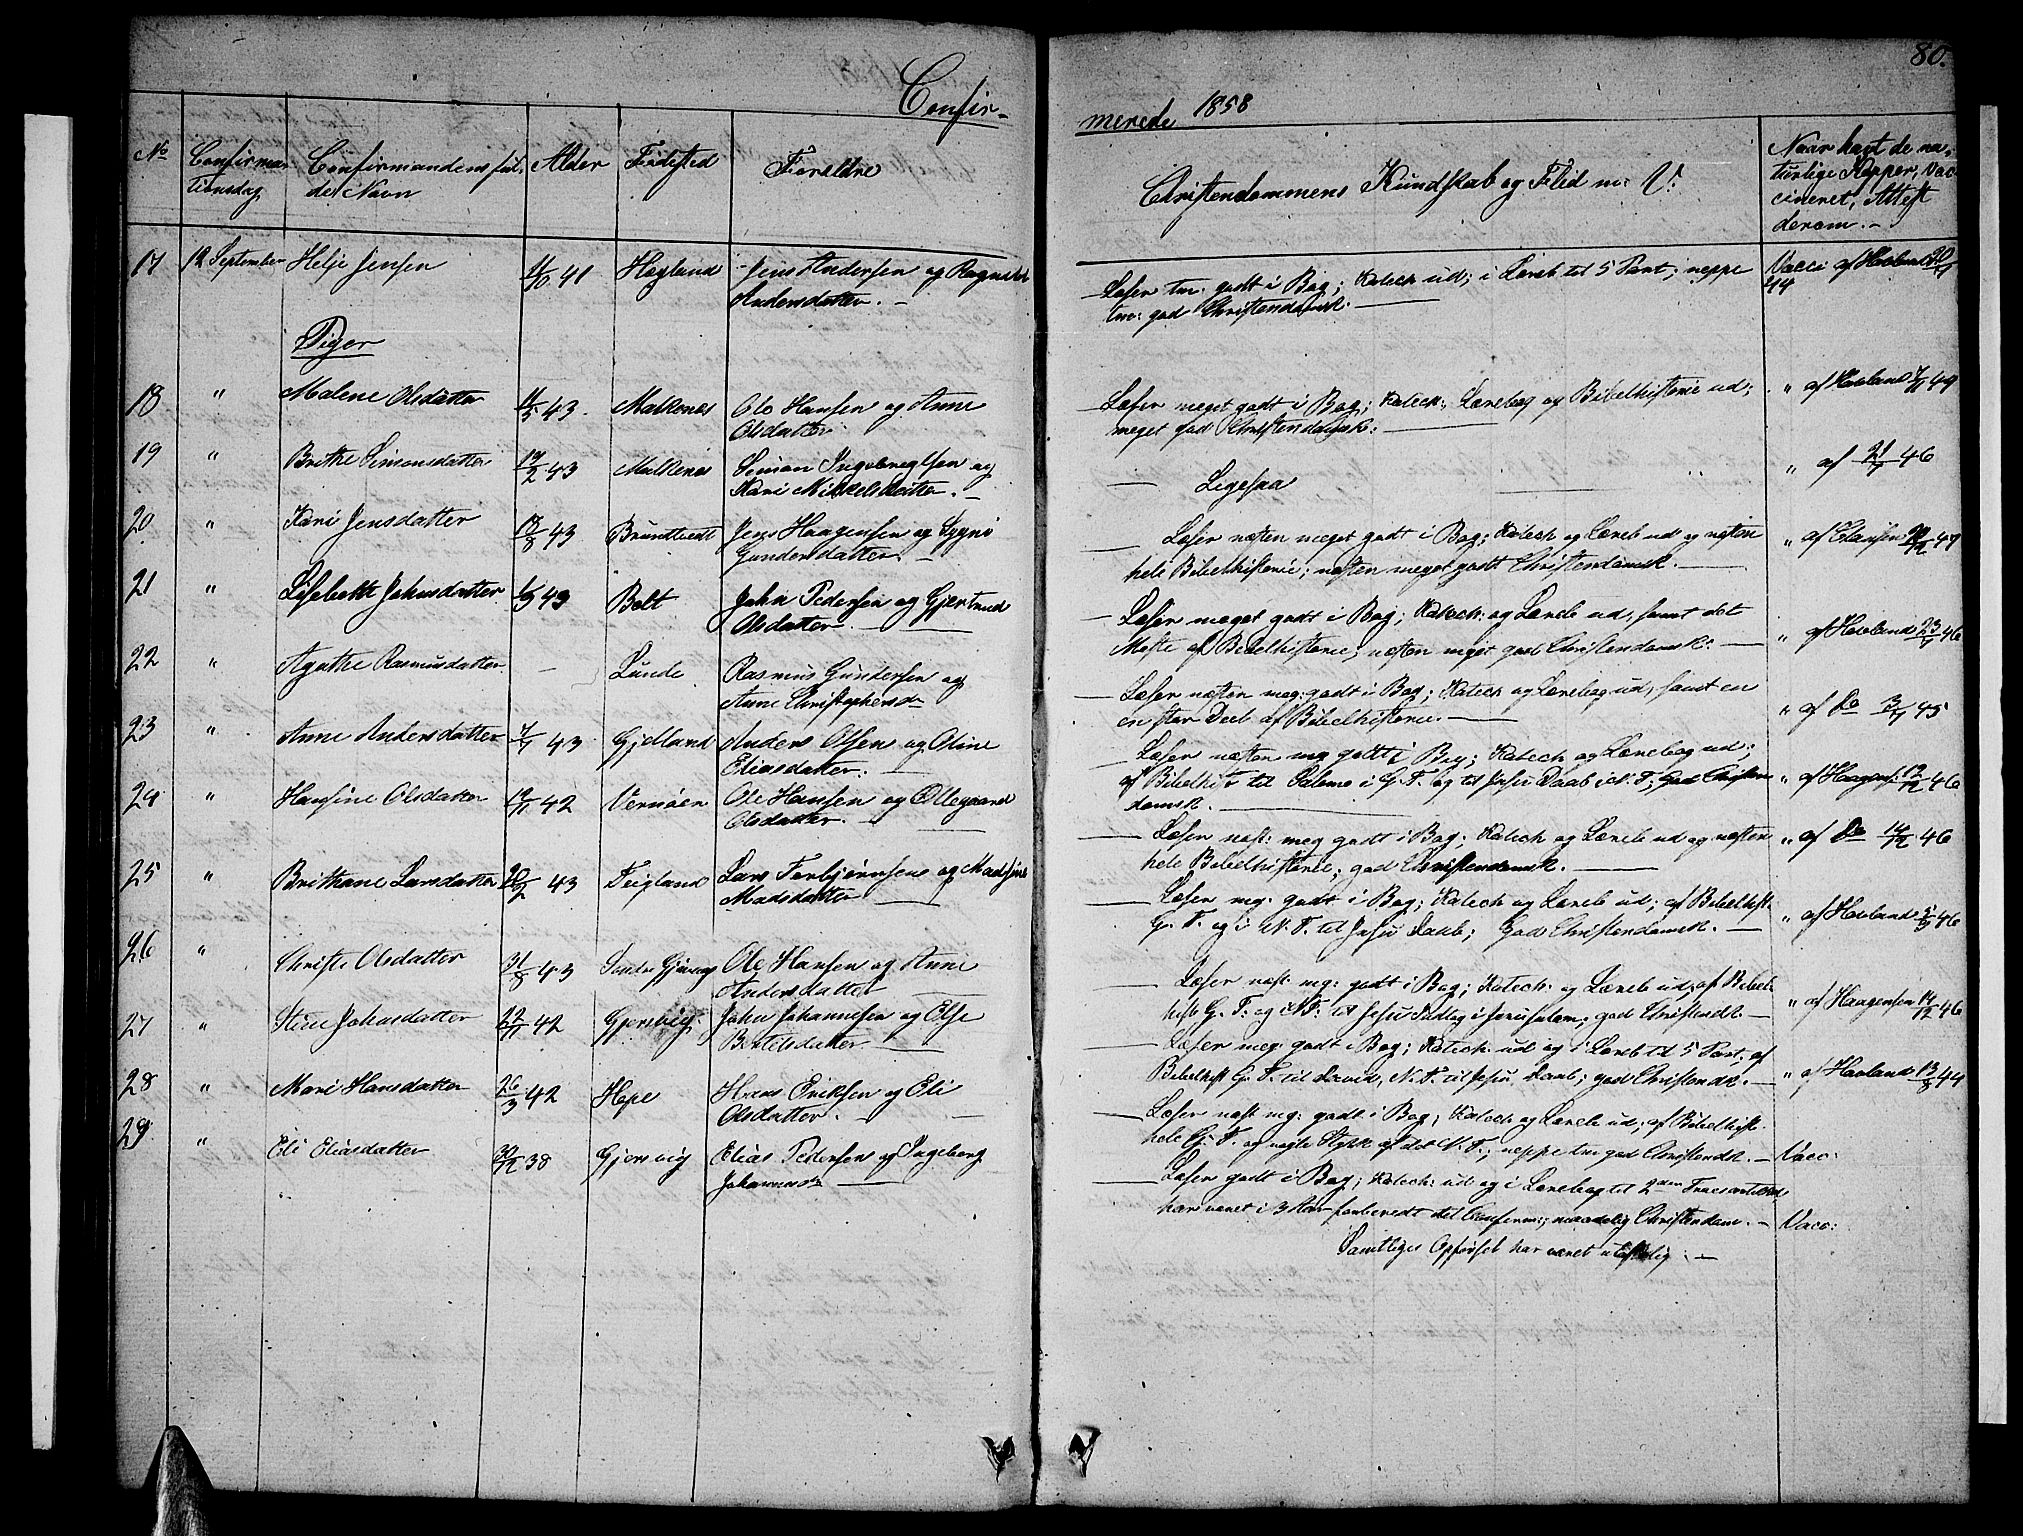 80.
Confir-
merede 1858
No
Confirma-
tionsdag
Confirmandens ful-
de Navn
Alder
Fødested
Forældre
Christendommens Kundskab og Flid m: V:
Naar havt de na-
turlige Kopper, Vac-
cineret, Attest
derom. -
17 12 September Helje Jensen 41 Høgland Jens Andersen og Ragnilde
Andersdatter. -
Læser tm: godt i Bog; Katech ud; i Læreb til 5 Part; neppe
tm: god Christendomsk: -
Vacci af Havland
Piger
18 " Malene Olsdatter 11/5 43. Malkenes Ole Hansen og Anne
Olsdatter
Læser meget godt i Bog; Katech:, Lærebog og Bibelhistorie ud;
meget god Christendomsk:
" af Havland 49
19 " Brithe Simonsdatter 43 Malkenes Simon Ingebregtsen og
Kari Mikkelsdatter. -
Ligesaa
" af 46
20 " Kari Jensdatter 18/8 43 Brundtvedt Jens Haagensen og
Gundersdatter. -
Læser næsten meget godt i Bog; Katech og Læreb ud og næsten
hele Bibelhistorie; næsten meget godt Christendomsk. -
" af Clausen 47
21 " Lisebeth Johnsdatter 43 Bolt John Pedersen og Gjertrud
Olsdatter. -
Læser meget godt i Bog; Katech: og Læreb ud, samt det
Meste af Bibelhistorie; næsten meget god Christendomsk: -
" af Havland 46
22 " Agathe Rasmusdatter - Lunde Rasmus Gundersen og
Anne Christophersd
Læser næsten meg: godt i Bog; Katech og Lærebog ud, samt en
en stor Deel af Bibelhistorie. -
" af Do 45
23 " Anne Andersdatter 43 Gjedland Anders Olsen og Oline
Eliasdatter. -
Læser næsten meg godt i Bog; Katech og Lærebog ud;
af Bibelhist til Salomo i G. T. og til Jesu Daab i N. T; God Christen
domsk. -
" af Haagens: 46
24 " Hansine Olsdatter 42 Vernøen Ole Hansen og Ollegaard
Olsdatter. -
Læser næst: meg godt i Bog; Katech og Læreb ud og næsten
hele Bibelhistorie; god Christendomsk. -
" af Do 46
25 " Brithane Larsdatter 43 Teigland Lars Torbjørnsen og Madsine
Madsdatter -
Læser meg: godt i Bog; Katech og Læreb ud; af Bibelhist
G. T. og i N. T. til Jesu Daab; God Christendomsk. -
" af Havland 46
26 " Christi Olsdatter 31/8 43 Søndre Gjersvig Ole Hansen og Anne
Andersdatter
Læser næst: meg: godt i Bog; Katech: og Læreb ud; af Bibel-
hist G. T. og i N. T. til Jesu Indtog i Jerusalem; god Christendk -
" af Haagensen 14/12 46
27 " Stine Johnsdatter 22/11 42 Gjersvig John Johannesen og Else
Bertelsdatter. -
Læser meg: godt i Bog; Katech: ud og i Læreb til 5 Part; af
Bibelhist G. T. til David, N. T. til Jesu Daab; god Christendk. -
" af Havland 13/8 44
28 " Mari Hansdatter 26/3 42 Hope Hans Eriksen og Eli
Olsdatter. -
Læser næst meg: godt i Bog; Katech og Læreb ud; af Bibelhist.
hele G. T. og nogle Stykk af det N. T.; neppe tm god Christendk. -
Vacc:
29 " Eli Eliasdatter 30/12 38 Gjersvig Elias Pedersen og Ingeborg
Johannesd -
Læser godt i Bog; Katech: ud og i Lærebog til 2den Troesartikel
har været i 3 Aar forberedt til Conferm:; maadelig Christendom. -
Vacc:
Samtliges Opførsel har været ulastelig. -